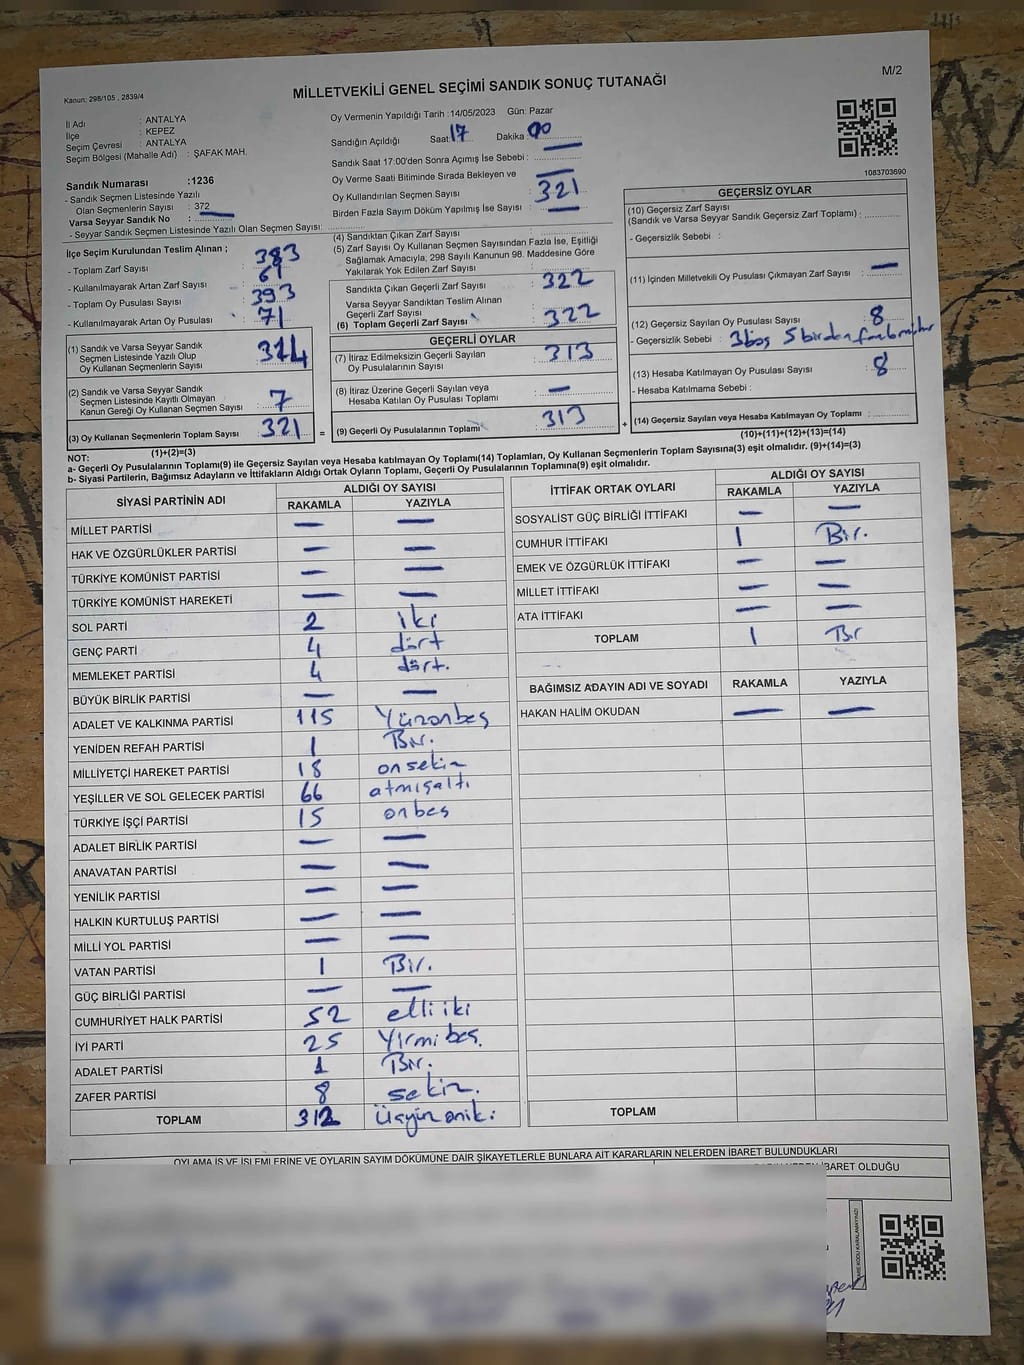 M/2
Kanun: 298/105 , 2839/4
MİLLETVEKİLİ GENEL SEÇİMİ SANDIK SONUÇ TUTANAĞI
İl Adı : ANTALYA
İlçe : KEPEZ
Seçim Çevresi : ANTALYA
Seçim Bölgesi (Mahalle Adı) : ŞAFAK MAH.
Sandık Numarası :1236
- Sandık Seçmen Listesinde Yazılı
Olan Seçmenlerin Sayısı : 372
Varsa Seyyar Sandık No :
- Seyyar Sandık Seçmen Listesinde Yazılı Olan Seçmen Sayısı:
Oy Vermenin Yapıldığı Tarih :14/05/2023 Gün: Pazar
Sandığın Açıldığı Saat 17 Dakika 00
Sandık Saat 17:00'den Sonra Açımış İse Sebebi : —
Oy Verme Saati Bitiminde Sırada Bekleyen ve —
Oy Kullandırılan Seçmen Sayısı : 321
Birden Fazla Sayım Döküm Yapılmış İse Sayısı : —
1083703690
İlçe Seçim Kurulundan Teslim Alınan ;
- Toplam Zarf Sayısı : 383
- Kullanılmayarak Artan Zarf Sayısı : 61
- Toplam Oy Pusulası Sayısı : 393
- Kullanılmayarak Artan Oy Pusulası : 71
(1) Sandık ve Varsa Seyyar Sandık
Seçmen Listesinde Yazılı Olup
Oy Kullanan Seçmenlerin Sayısı : 314
(2) Sandık ve Varsa Seyyar Sandık
Seçmen Listesinde Kayıtlı Olmayan
Kanun Gereği Oy Kullanan Seçmen Sayısı : 7
(3) Oy Kullanan Seçmenlerin Toplam Sayısı : 321
(1)+(2)=(3)
(4) Sandıktan Çıkan Zarf Sayısı :
(5) Zarf Sayısı Oy Kullanan Seçmen Sayısından Fazla İse, Eşitliği
Sağlamak Amacıyla, 298 Sayılı Kanunun 98. Maddesine Göre
Yakılarak Yok Edilen Zarf Sayısı :
Sandıkta Çıkan Geçerli Zarf Sayısı : 322
Varsa Seyyar Sandıktan Teslim Alınan
Geçerli Zarf Sayısı :
(6) Toplam Geçerli Zarf Sayısı : 322
GEÇERLİ OYLAR
(7) İtiraz Edilmeksizin Geçerli Sayılan
Oy Pusulalarının Sayısı : 313
(8) İtiraz Üzerine Geçerli Sayılan veya
Hesaba Katılan Oy Pusulası Toplamı : —
= (9) Geçerli Oy Pusulalarının Toplamı : 313 +
GEÇERSİZ OYLAR
(10) Geçersiz Zarf Sayısı
(Sandık ve Varsa Seyyar Sandık Geçersiz Zarf Toplamı) :
- Geçersizlik Sebebi :
(11) İçinden Milletvekili Oy Pusulası Çıkmayan Zarf Sayısı : —
(12) Geçersiz Sayılan Oy Pusulası Sayısı : 8
- Geçersizlik Sebebi : 3 boş 5 birden
(13) Hesaba Katılmayan Oy Pusulası Sayısı : 8
- Hesaba Katılmama Sebebi :
(14) Geçersiz Sayılan veya Hesaba Katılmayan Oy Toplamı :
(10)+(11)+(12)+(13)=(14)
NOT:
a- Geçerli Oy Pusulalarının Toplamı(9) ile Geçersiz Sayılan veya Hesaba katılmayan Oy Toplamı(14) Toplamları, Oy Kullanan Seçmenlerin Toplam Sayısına(3) eşit olmalıdır. (9)+(14)=(3)
b- Siyasi Partilerin, Bağımsız Adayların ve İttifakların Aldığı Ortak Oyların Toplamı, Geçerli Oy Pusulalarının Toplamına(9) eşit olmalıdır.
SİYASİ PARTİNİN ADI ALDIĞI OY SAYISI
RAKAMLA YAZIYLA
MİLLET PARTİSİ — —
HAK VE ÖZGÜRLÜKLER PARTİSİ — —
TÜRKİYE KOMÜNİST PARTİSİ — —
TÜRKİYE KOMÜNİST HAREKETİ — —
SOL PARTİ 2 iki
GENÇ PARTİ 4 dört
MEMLEKET PARTİSİ 4 dört.
BÜYÜK BİRLİK PARTİSİ — —
ADALET VE KALKINMA PARTİSİ 115 Yüzonbeş
YENİDEN REFAH PARTİSİ 1 Bir.
MİLLİYETÇİ HAREKET PARTİSİ 18 onsekiz
YEŞİLLER VE SOL GELECEK PARTİSİ 66 atmışaltı
TÜRKİYE İŞÇİ PARTİSİ 15 onbeş
ADALET BİRLİK PARTİSİ — —
ANAVATAN PARTİSİ — —
YENİLİK PARTİSİ — —
HALKIN KURTULUŞ PARTİSİ — —
MİLLİ YOL PARTİSİ — —
VATAN PARTİSİ 1 Bir.
GÜÇ BİRLİĞİ PARTİSİ — —
CUMHURİYET HALK PARTİSİ 52 elli iki
İYİ PARTİ 25 Yirmi beş.
ADALET PARTİSİ 1 Bir.
ZAFER PARTİSİ 8 sekiz.
TOPLAM 312 Üçyüz oniki
İTTİFAK ORTAK OYLARI ALDIĞI OY SAYISI
RAKAMLA YAZIYLA
SOSYALİST GÜÇ BİRLİĞİ İTTİFAKI — —
CUMHUR İTTİFAKI 1 Bir.
EMEK VE ÖZGÜRLÜK İTTİFAKI — —
MİLLET İTTİFAKI — —
ATA İTTİFAKI — —
TOPLAM 1 Bir
BAĞIMSIZ ADAYIN ADI VE SOYADI RAKAMLA YAZIYLA
HAKAN HALİM OKUDAN — —
TOPLAM
OYLAMA İŞ VE İŞLEMLERİNE VE OYLARIN SAYIM DÖKÜMÜNE DAİR ŞİKAYETLERLE BUNLARA AİT KARARLARIN NELERDEN İBARET BULUNDUKLARI
İBARET OLDUĞU